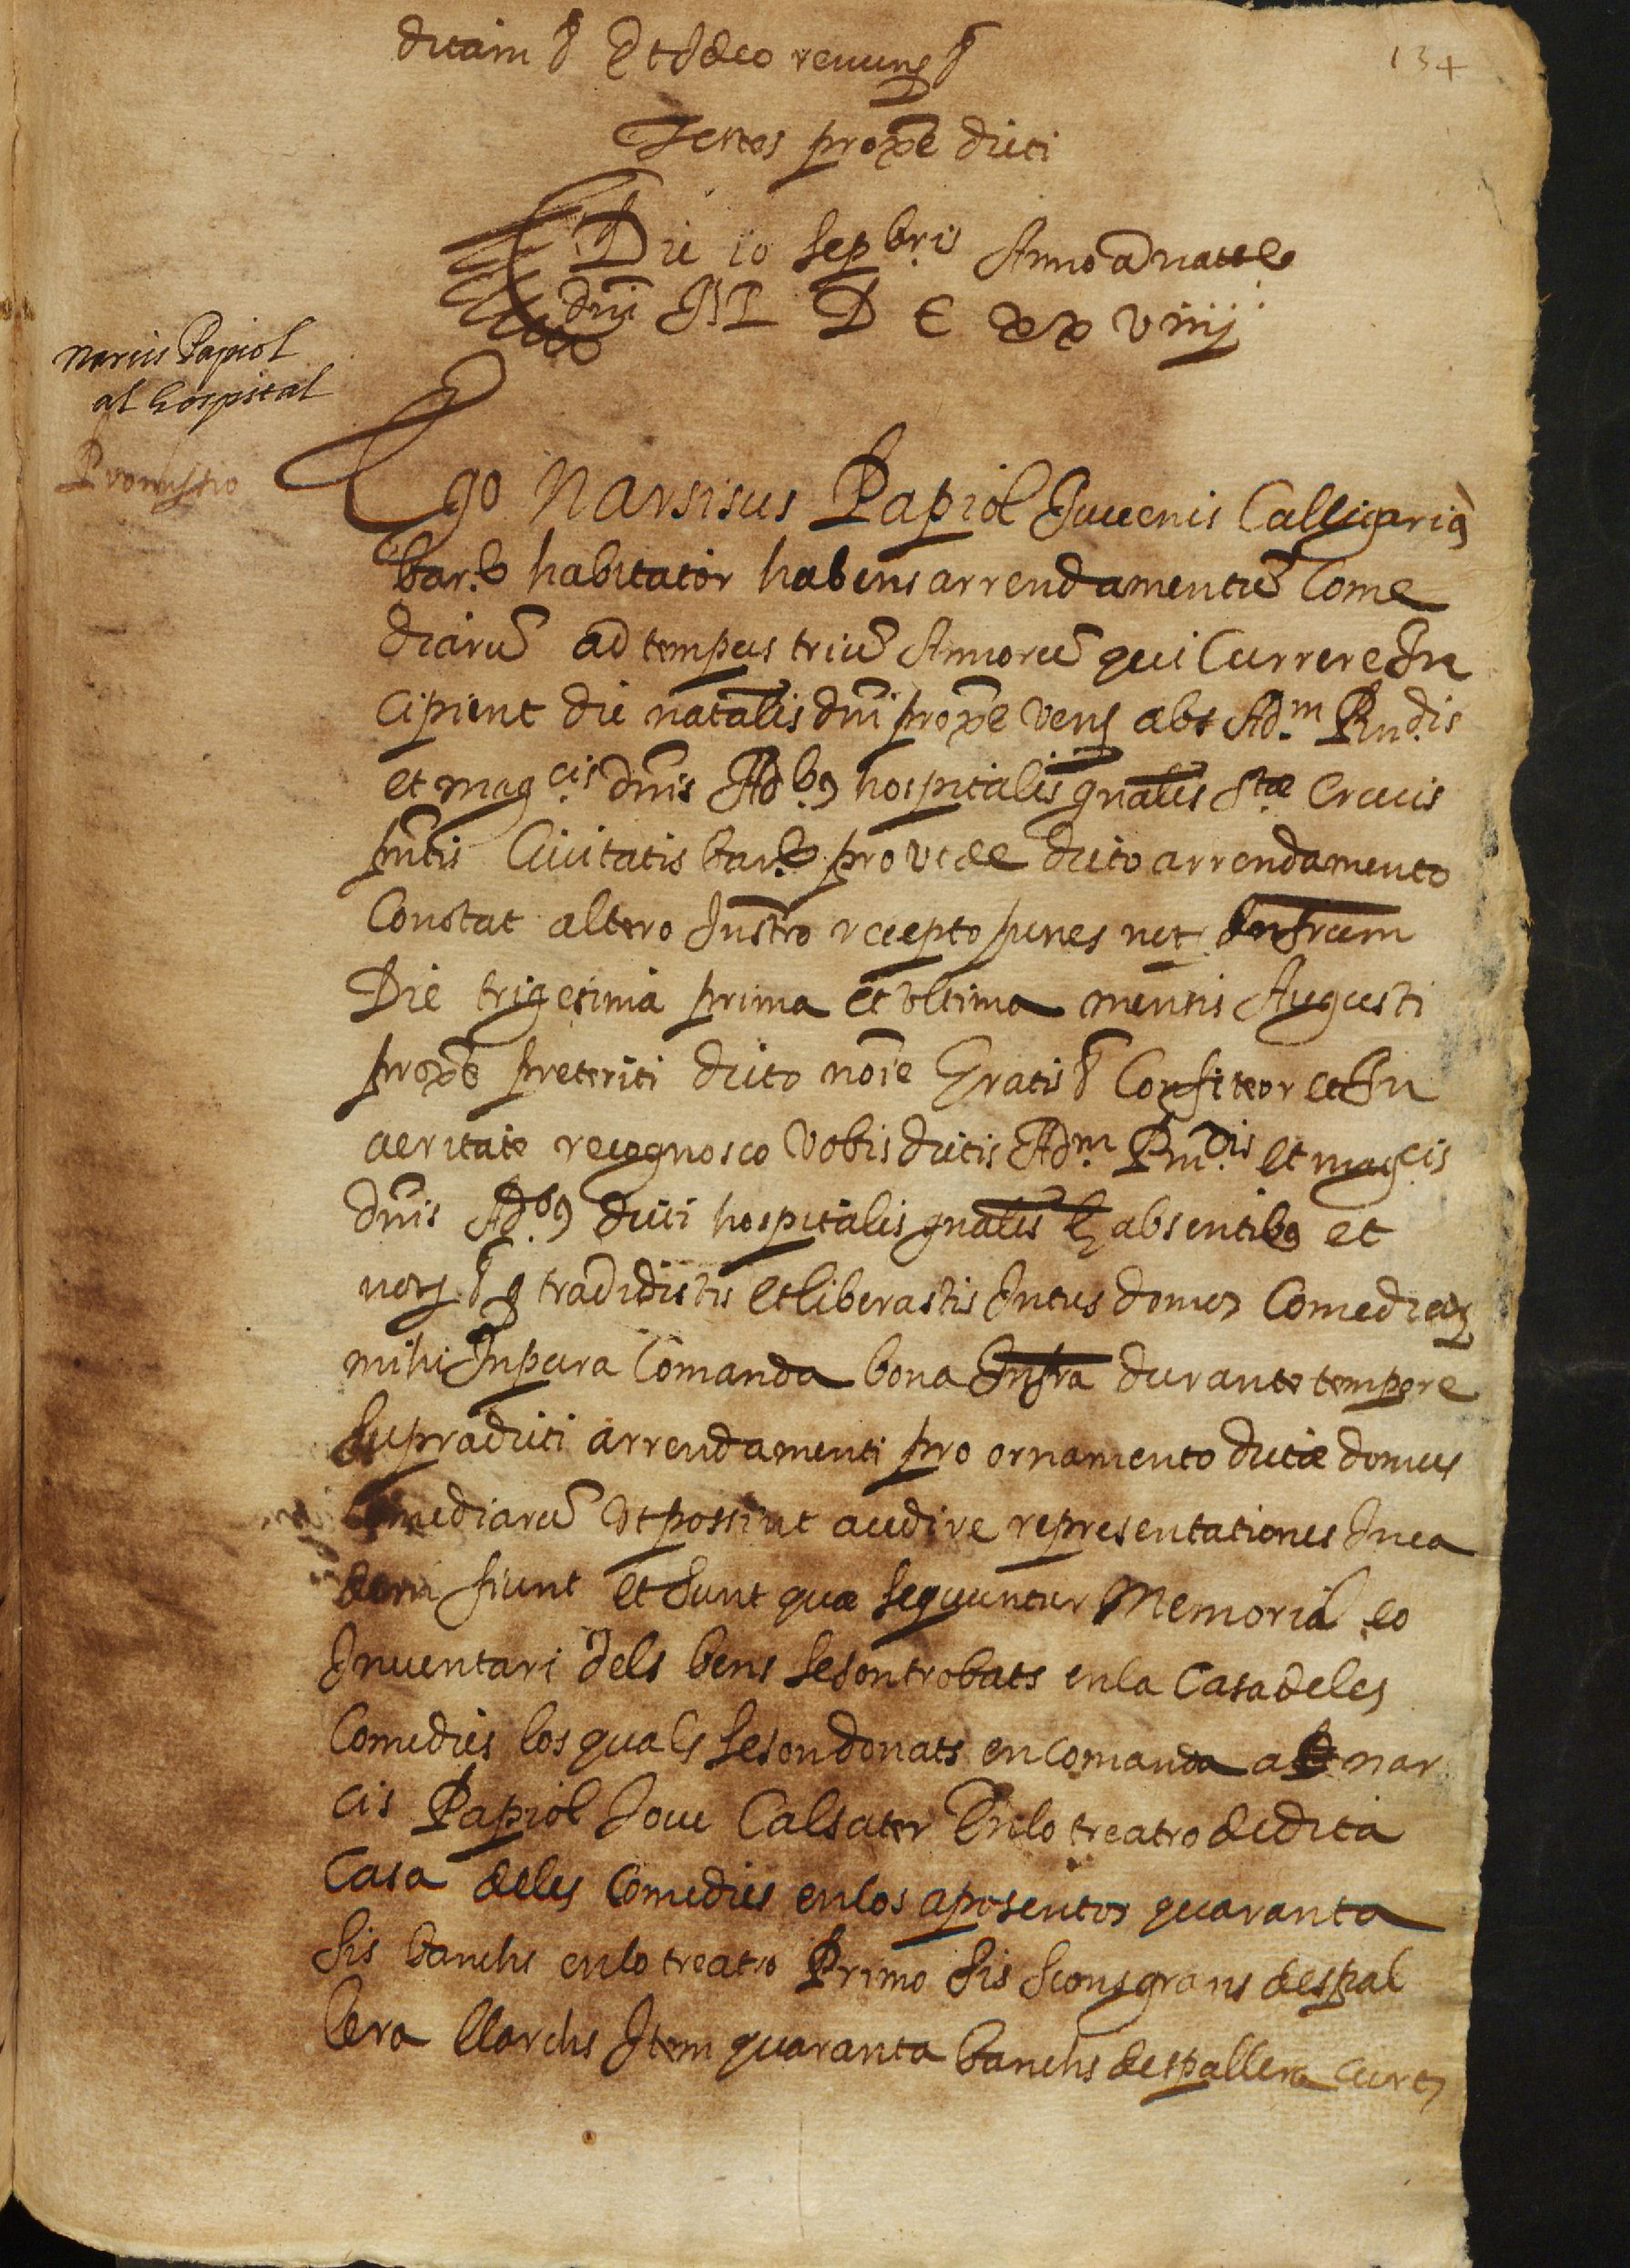 134
dictam & Et ideo renuns &
Testes proxe dicti
Die 10 Sepbris Anno a natte
dni M D C xx viiij
Narcis Papiol
al hospital
Promissio
Ego Narsisus Papiol Juvenis Calligarius
bar.e habitator habens arrendamentũ Come
diarũ ad tempus triũ Annorũ qui Currere In
cipient die natalis dni proxe vens abs Adm Rndis
et magcis dnis Adbꝰ hospitalis gnalis Stæ Crucis
pntis Civitatis bar.e prout de dicto arrendamento
Constat altero Instro recepto penes not infrum
Die trigesima prima et ultima mensis Augusti
proxe preteriti dicto noie Gratis & Confiteor et In
veritate recognosco Vobis dictis Adm Rndis et magcis
dnis Adbꝰ dicti hospitalis gnalis absentibꝰ et
nots & q tradidistis et liberastis Intus domus Comediar
mihi In pura Comanda bona Infra durante tempore
supradicti arrendamenti pro ornamento dictæ domus
Comediarũ Ut possint audire representationes In ea
dem fiunt et sunt quæ sequuntur Memorial eo
Inventari dels bens se son trobats en la Casa deles
Comedies los quals se son donats en comanda a nar
cis Papiol Jove Calsater En lo treatro de dita
Casa deles Comedies en los aposentos quaranta
sis banchs en lo treatro Primo sis scons grans despal
lera llarchs Item quaranta banchs despallera curts